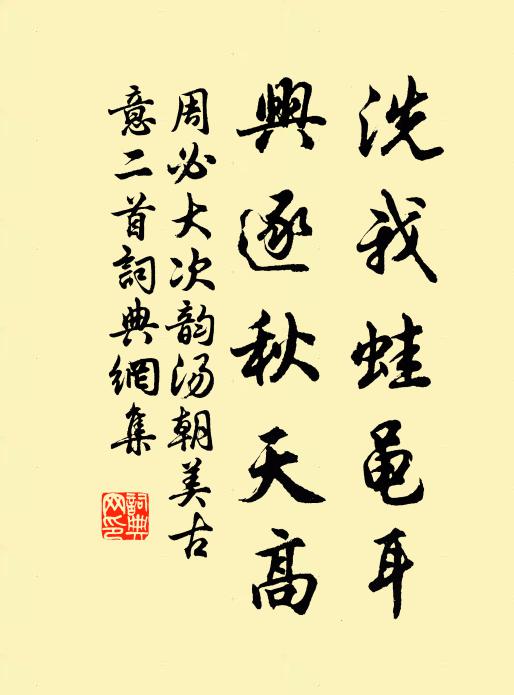 洗我蛙黽耳
興逐秋天高
周必大次韵汤朝美古
意二首詞典網集
詞典网印